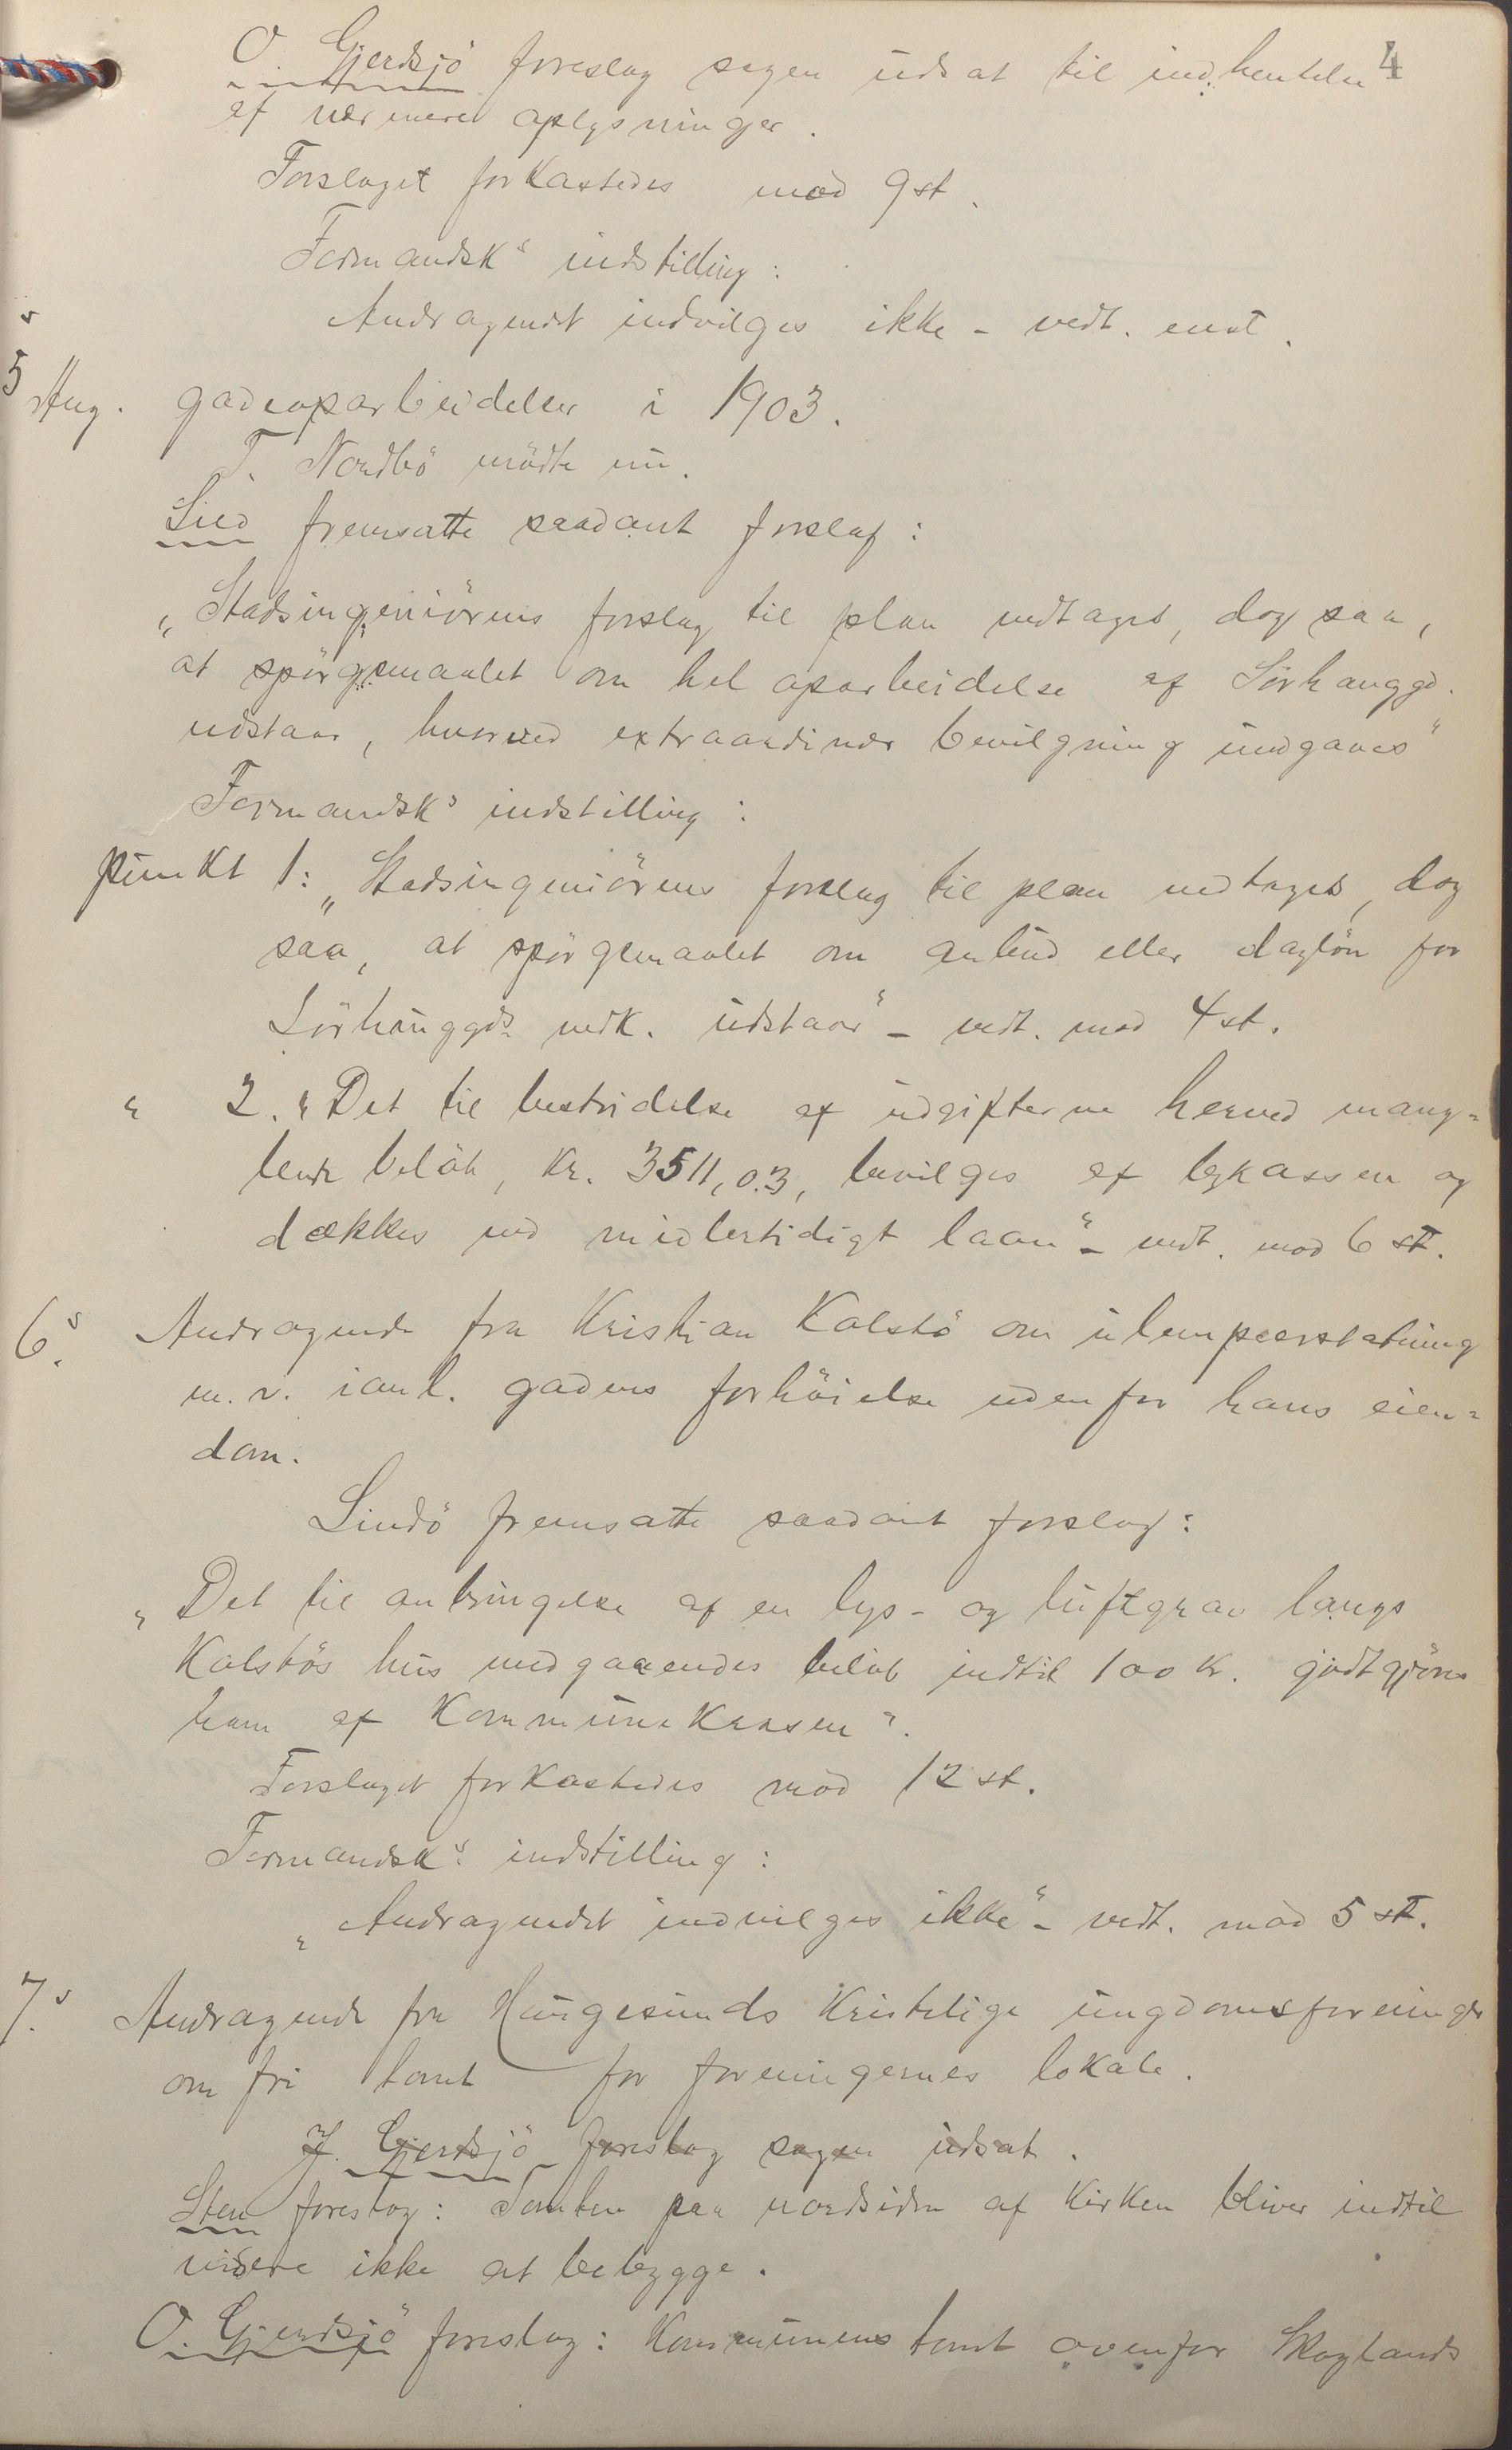 4
O. Gjerdsjö foreslog sagen udsat til indhentelse
af nærmere oplysninger.
Forslaget forkastedes mod 9 st.
Formandsk^s indstilling:
Andragendet indvilges ikke – vedt. enst.
5^s Ang. gadeoparbeidelser i 1903.
T. Nordbö mödte nu.
fremsatte saadant forslag:
„Stadsingeniörens forslag til plan vedtages, dog saa,
at spörgsmaalet om hel oparbeidelse af Sörhauggd.
udstaar, hvorved extraordinær bevilgning undgaaes“
Formandsk^s indstilling:
punkt 1: „Stadsingeniörens forslag til plan vedtages, dog
saa, at spörgsmaalet om anbud eller daglön for
Sörhauggds. vedk. udstaar“ – vedt. mod 4 st.
" 2. „Det til bestridelse af udgifterne herved mang=
lende belöb, kr. 3511,03, bevilges af bykassen og
dækkes ved midlertidigt laan“ – vedt. mod 6 st.
6^s. Andragende fra Kristian Kalstö om ulempeerstatning
m. v. ianl. gadens forhöielse udenfor hans eien=
dom.
Lindö fremsatte saadant forslag:
„Det til anbringelse af en lys- og luftgrav langs
Kalstös hus medgaaendes belöb indtil 100 kr. godtgjöres
ham af kommunekassen“.
Forslaget forkastedes mod 12 st.
Formandsk^s. indstilling:
„Andragendet indvilges ikke“ – vedt. mod 5 st.
7^s. Andragende fra Haugesunds kristelige ungdomsforeninger
om fri tomt for foreningernes lokale.
J. Gjerdsjö foreslog sagen udsat.
Sten foreslog: Tomten paa nordsiden af kirken bliver indtil
videre ikke at bebygge.
O. Gjerdsjö foreslog: Kommunens tomt ovenfor Skoglands